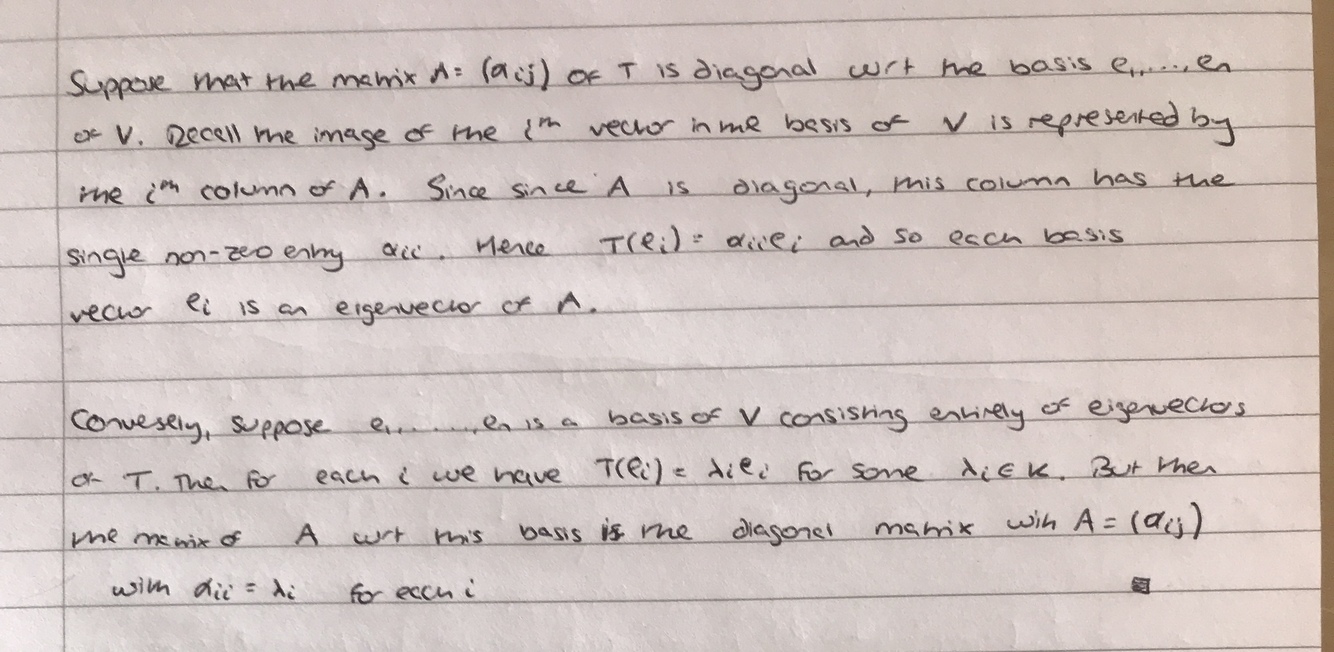 Suppose that the matrix A = (αij) of T is diagonal wrt the basis e1,....,en
of V. Recall the image of the ith vector in the basis of V is represented by
the ith column of A. Since since A is diagonal, this column has the
single non-zero entry αii. Hence T(ei) = αiiei and so each basis
vector ei is an eigenvector of A.
Convesely, suppose e1,.......,en is a basis of V consisting entirely of eigenvectors
of T. Then for each i we have T(ei) = λiei for some λi ∈ K. But then
the matrix of A wrt this basis is the diagonal matrix with A = (αij)
with αii = λi for each i